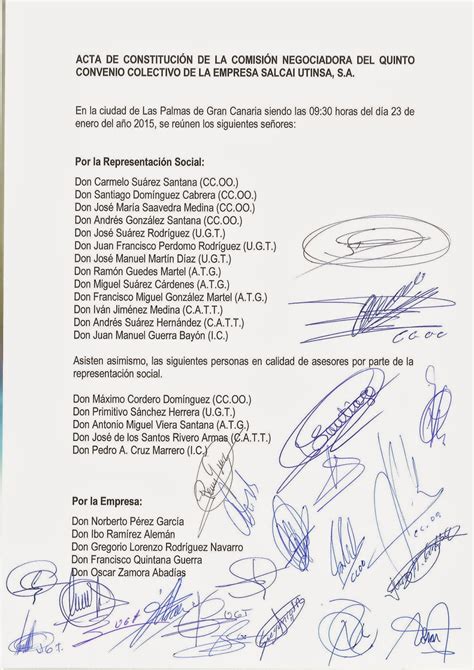 ACTA DE CONSTITUCIÓN DE LA COMISIÓN NEGOCIADORA DEL QUINTO
CONVENIO COLECTIVO DE LA EMPRESA SALCAI UTINSA, S.A.
En la ciudad de Las Palmas de Gran Canaria siendo las 09:30 horas del día 23 de
enero del año 2015, se reúnen los siguientes señores:
Por la Representación Social:
Don Carmelo Suárez Santana (CC.OO.)
Don Santiago Domínguez Cabrera (CC.OO.)
Don José María Saavedra Medina (CC.OO.)
Don Andrés González Santana (CC.OO.)
Don José Suárez Rodríguez (U.G.T.)
Don Juan Francisco Perdomo Rodríguez (U.G.T.)
Don José Manuel Martín Díaz (U.G.T.)
Don Ramón Guedes Martel (A.T.G.)
Don Miguel Suárez Cárdenes (A.T.G.)
Don Francisco Miguel González Martel (A.T.G.)
Don Iván Jiménez Medina (C.A.T.T.)
Don Andrés Suárez Hernández (C.A.T.T.)
Don Juan Manuel Guerra Bayón (I.C.)
CCOO
Asisten asimismo, las siguientes personas en calidad de asesores por parte de la
representación social.
Don Máximo Cordero Domínguez (CC.OO.)
Don Primitivo Sánchez Herrera (U.G.T.)
Don Antonio Miguel Viera Santana (A.T.G.)
Don José de los Santos Rivero Armas (C.A.T.T.)
Don Pedro A. Cruz Marrero (I.C.)
Santiago
Por la Empresa:
Don Norberto Pérez García
Don Ibo Ramírez Alemán
Don Gregorio Lorenzo Rodríguez Navarro
Don Francisco Quintana Guerra
Don Oscar Zamora Abadías
CC.OO
CCOO
UGT
UGT
UGT.